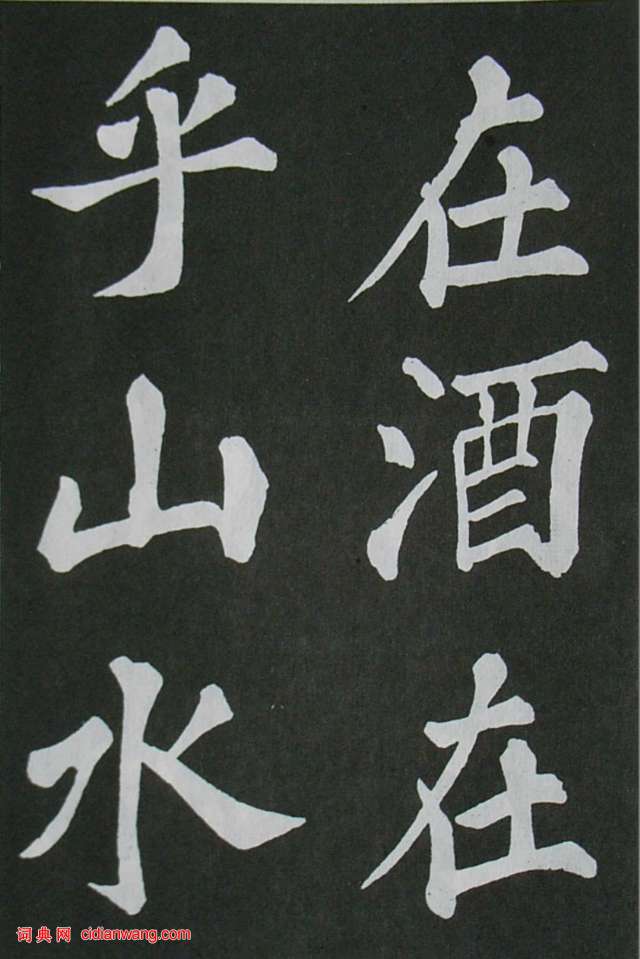 在酒在
乎山水
词典网 cidianwang.com